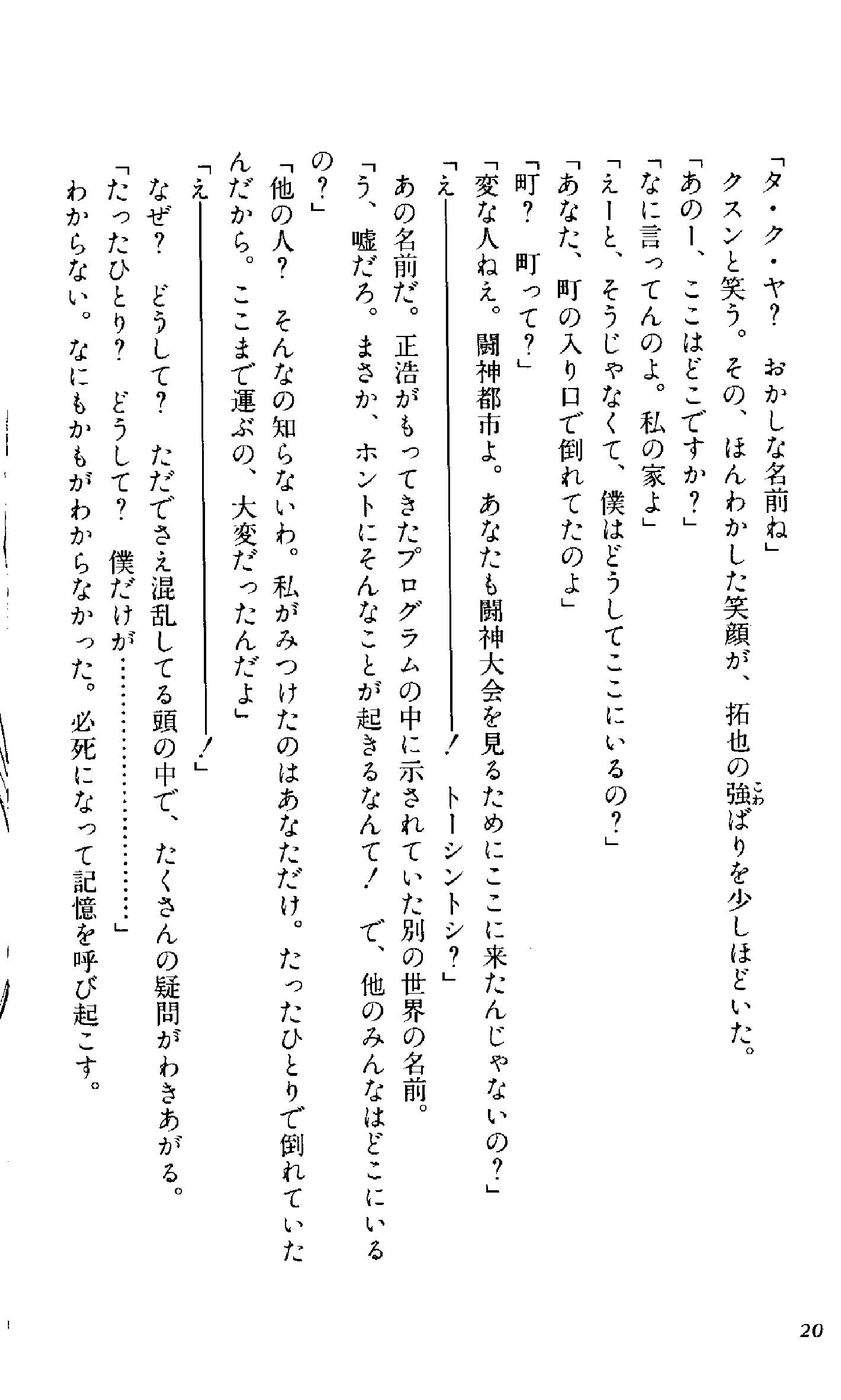 「タ・ク・ヤ？　おかしな名前ね」
クスンと笑う。その、ほんわかした笑顔が、拓也の強ばりを少しほどいた。
こわ
「あのー、ここはどこですか？」
「なに言ってんのよ。私の家よ」
「えーと、そうじゃなくて、僕はどうしてここにいるの？」
「あなた、町の入り口で倒れてたのよ」
「町？　町って？」
「変な人ねえ。闘神都市よ。あなたも闘神大会を見るためにここに来たんじゃないの？」
「え――――――――――！　トーシントシ？」
あの名前だ。正浩がもってきたプログラムの中に示されていた別の世界の名前。
「う、嘘だろ。まさか、ホントにそんなことが起きるなんて！　で、他のみんなはどこにいる
の？」
「他の人？　そんなの知らないわ。私がみつけたのはあなただけ。たったひとりで倒れていた
んだから。ここまで運ぶの、大変だったんだよ」
「え――――――――――！」
なぜ？　どうして？　ただでさえ混乱してる頭の中で、たくさんの疑問がわきあがる。
「たったひとり？　どうして？　僕だけが…………………………」
わからない。なにもかもがわからなかった。必死になって記憶を呼び起こす。
20